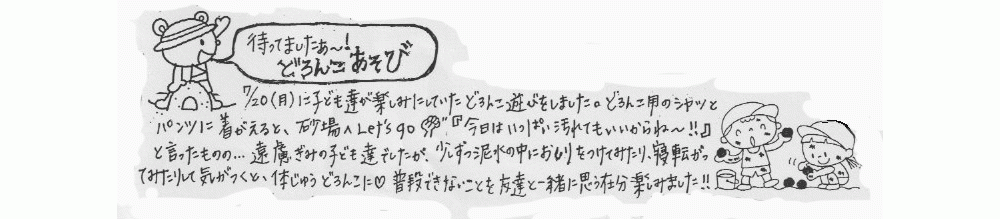 待ってましたぁ〜！
どろんこあそび
7/20(月)に子ども達が楽しみにしていたどろんこ遊びをしました。どろんこ用のシャツと
パンツに着がえると、砂場へLet's go 『今日はいっぱい汚れてもいいからね〜!!』
と言ったものの…遠慮ぎみの子ども達でしたが、少しずつ泥水の中におしりをつけてみたり、寝転がっ
てみたりして気がつくと、体じゅうどろんこに♡ 普段できないことを友達と一緒に思う存分楽しみました!!